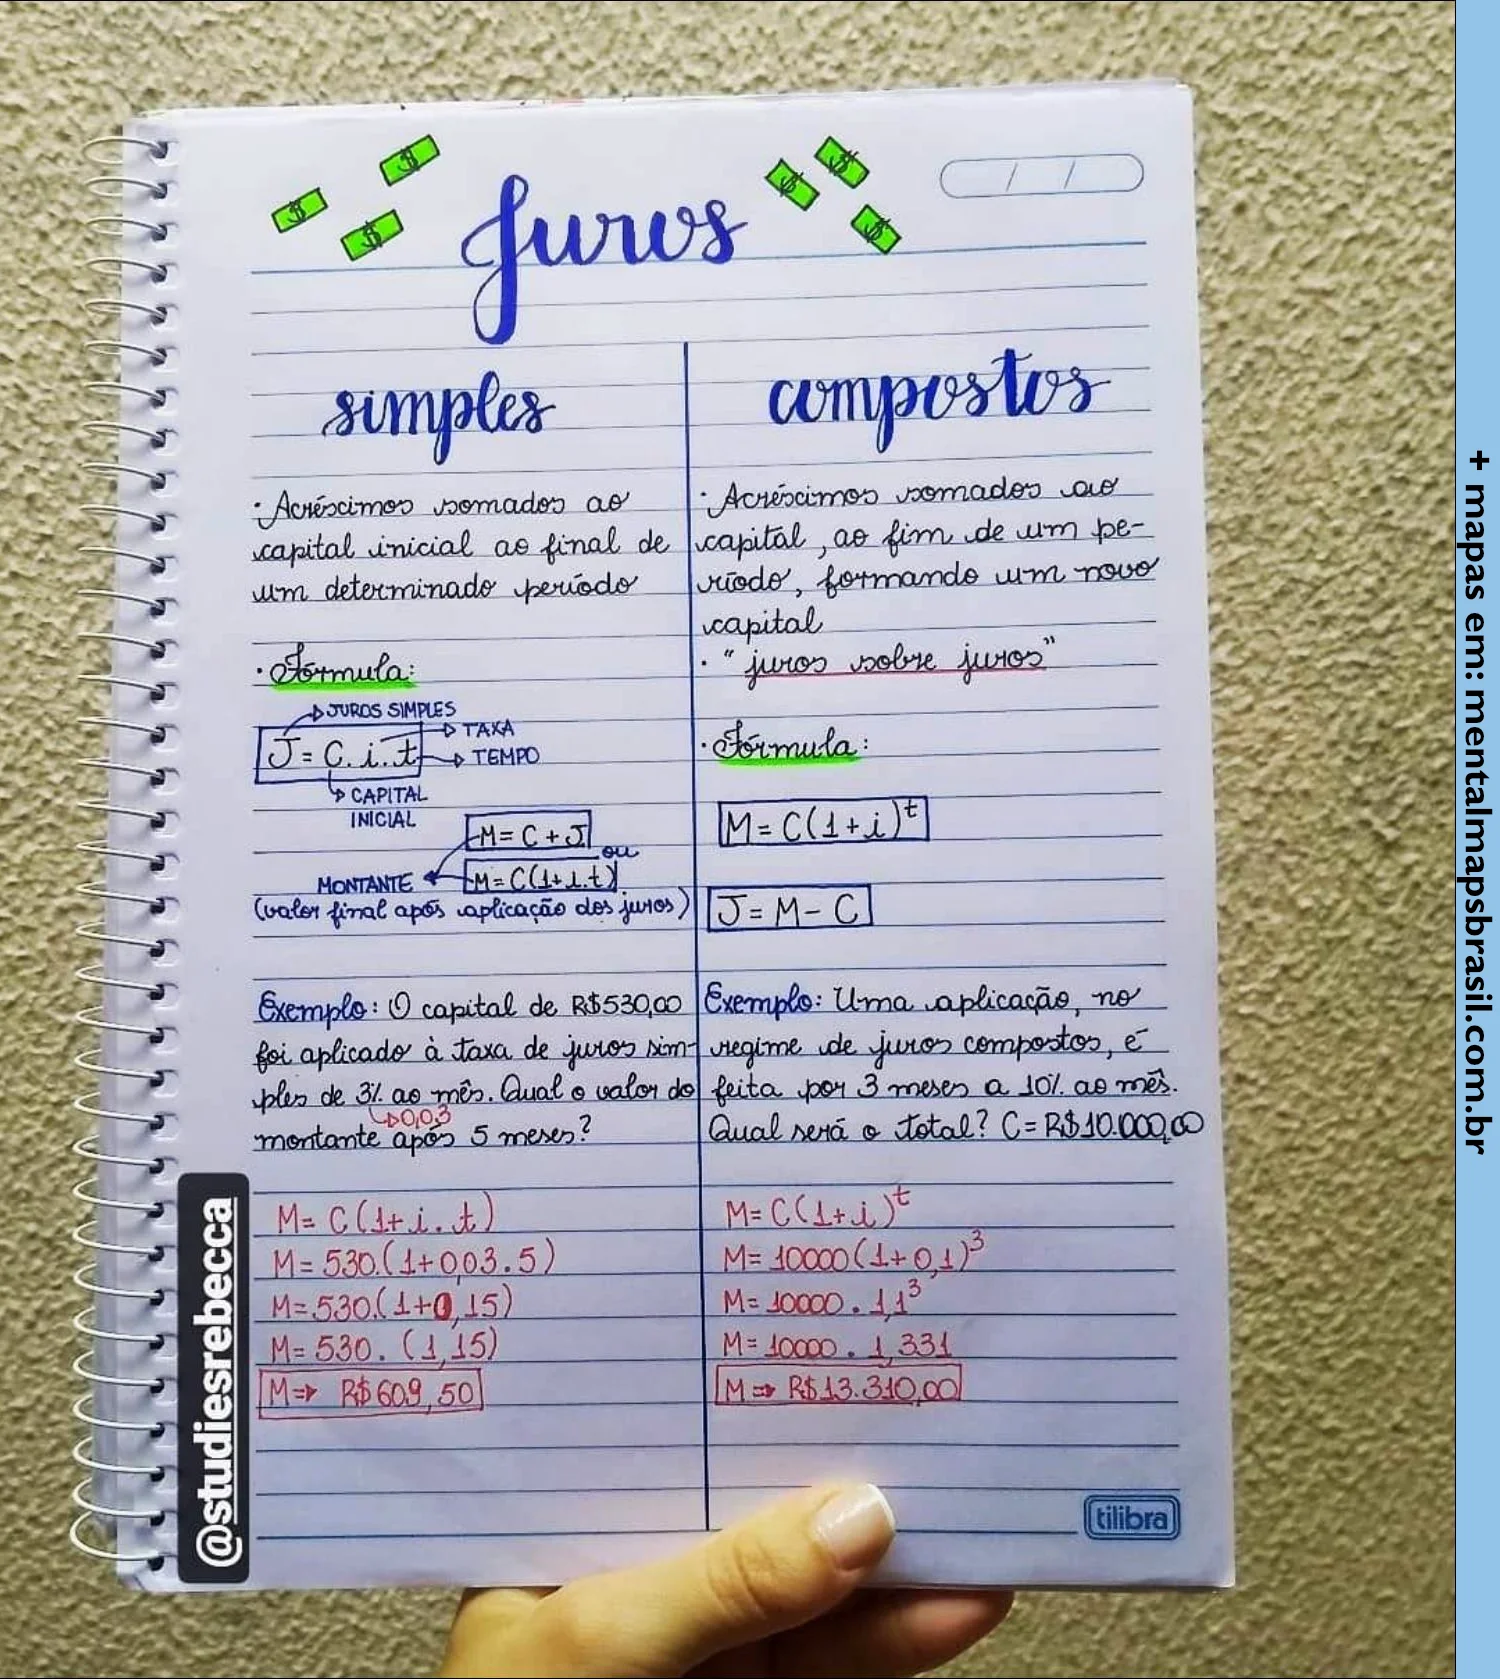 Juros
simples
· Acréscimos somados ao
capital inicial ao final de
um determinado período
· Fórmula:
JUROS SIMPLES
TAXA
J = C. i. t
TEMPO
CAPITAL
INICIAL
M = C + J
ou
M = C(1+i.t)
MONTANTE
(valor final após aplicação dos juros)
Exemplo: O capital de R$530,00
foi aplicado à taxa de juros sim-
ples de 3% ao mês. Qual o valor do
0,03
montante após 5 meses?
M = C (1+ i. t)
M = 530.(1+0,03.5)
M = 530.(1+0,15)
M = 530. (1,15)
M ⇒ R$ 609,50
compostos
· Acréscimos somados ao
capital, ao fim de um pe-
ríodo, formando um novo
capital
· "juros sobre juros"
· Fórmula:
M = C(1+i)^t
J = M - C
Exemplo: Uma aplicação, no
regime de juros compostos, é
feita por 3 meses a 10% ao mês.
Qual será o total? C = R$10.000,00
M = C(1+i)^t
M = 10000(1+0,1)^3
M = 10000 . 1,1^3
M = 10000 . 1,331
M ⇒ R$13.310,00
tilibra
@studiesrebecca
+ mapas em: mentalmapsbrasil.com.br